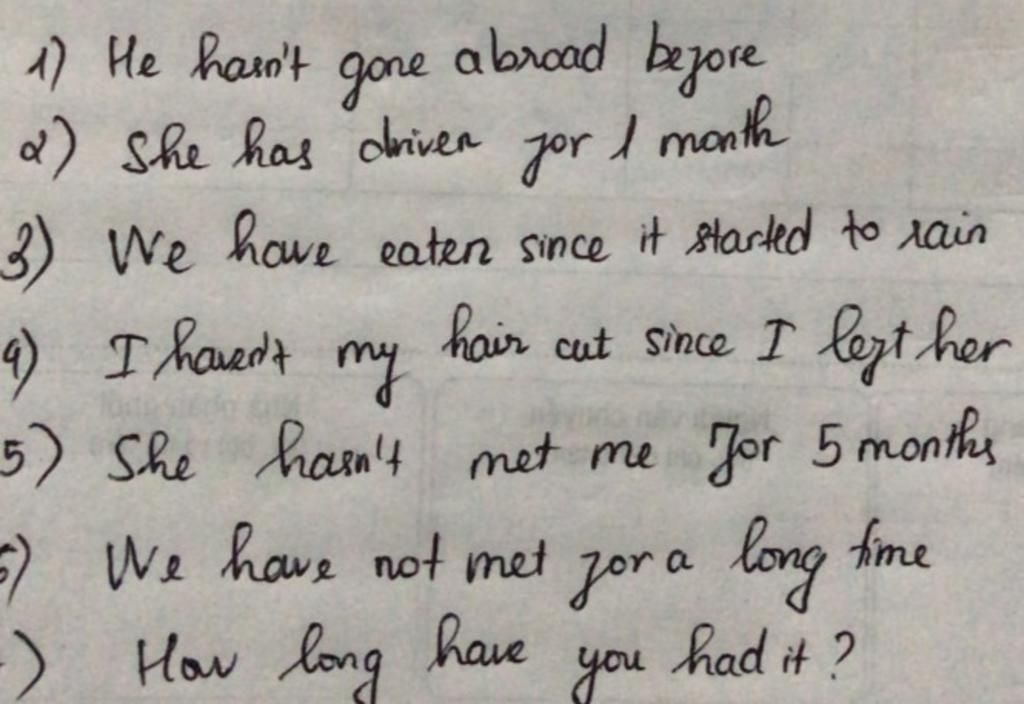 1) He hasn't gone abroad before
2) She has driven for 1 month
3) We have eaten since it started to rain
4) I haven't my hair cut since I left her
5) She hasn't met me for 5 months
6) We have not met for a long time
) How long have you had it?